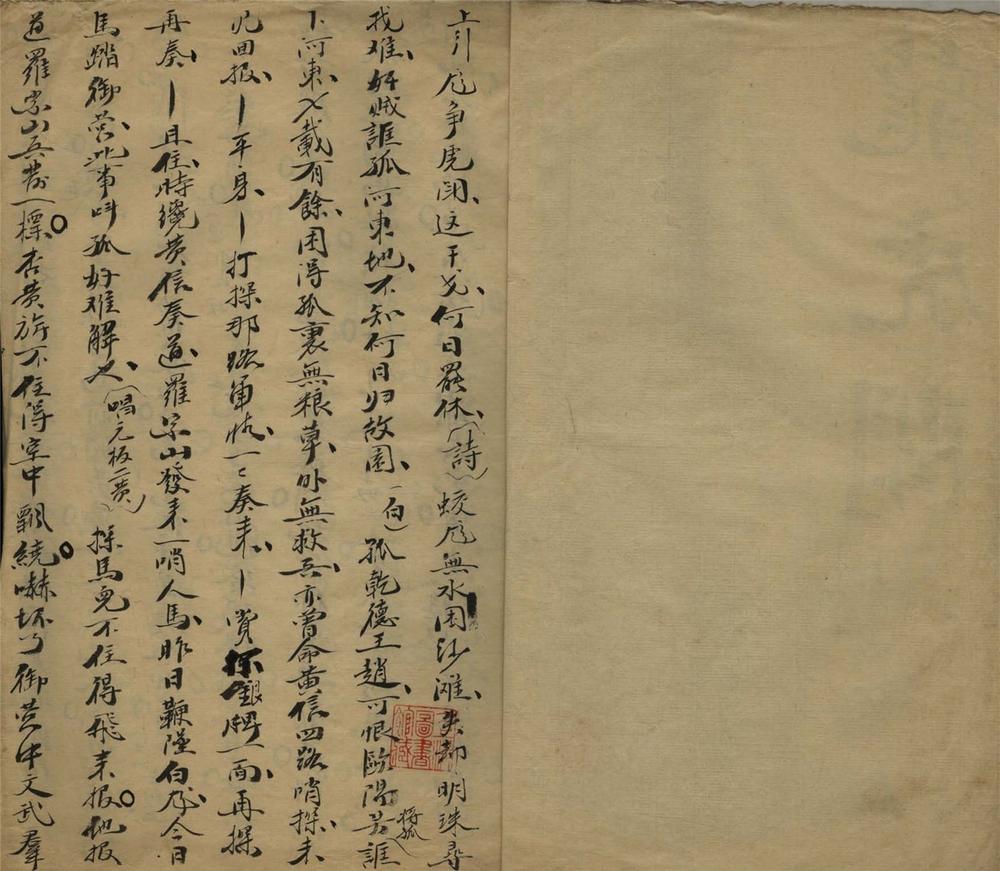 上引龙争虎闘这干戈何日罢休(詩)蛟龙無水困沙灘失却明珠尋
找难奸贼誆孤河東地不知何日归故園(白)孤乾德王趙可恨歐陽芳將孤誆
下河東七載有餘困得孤裏無粮草外無救兵亦曾命黄信四路哨探未
見回报〡平身〡打探那路軍情一〻奏来〡賞探銀牌一面再探
再奏〡且住時纔黄信奏道羅宗山發来一哨人馬昨日鞭隆白龙今日
馬踏御营此事叫孤好难解也(唱元板二黄)探馬兒不住得飛来报他报
道羅宗山兵馬一標杏黄旂不住得空中飄繞嚇坏了御营中文武羣
圖書
館藏